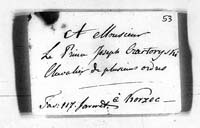 53
A Monsieur
Le Prince Joseph Czartoryski
Chevalier de plusieurs ordres
à Korzec